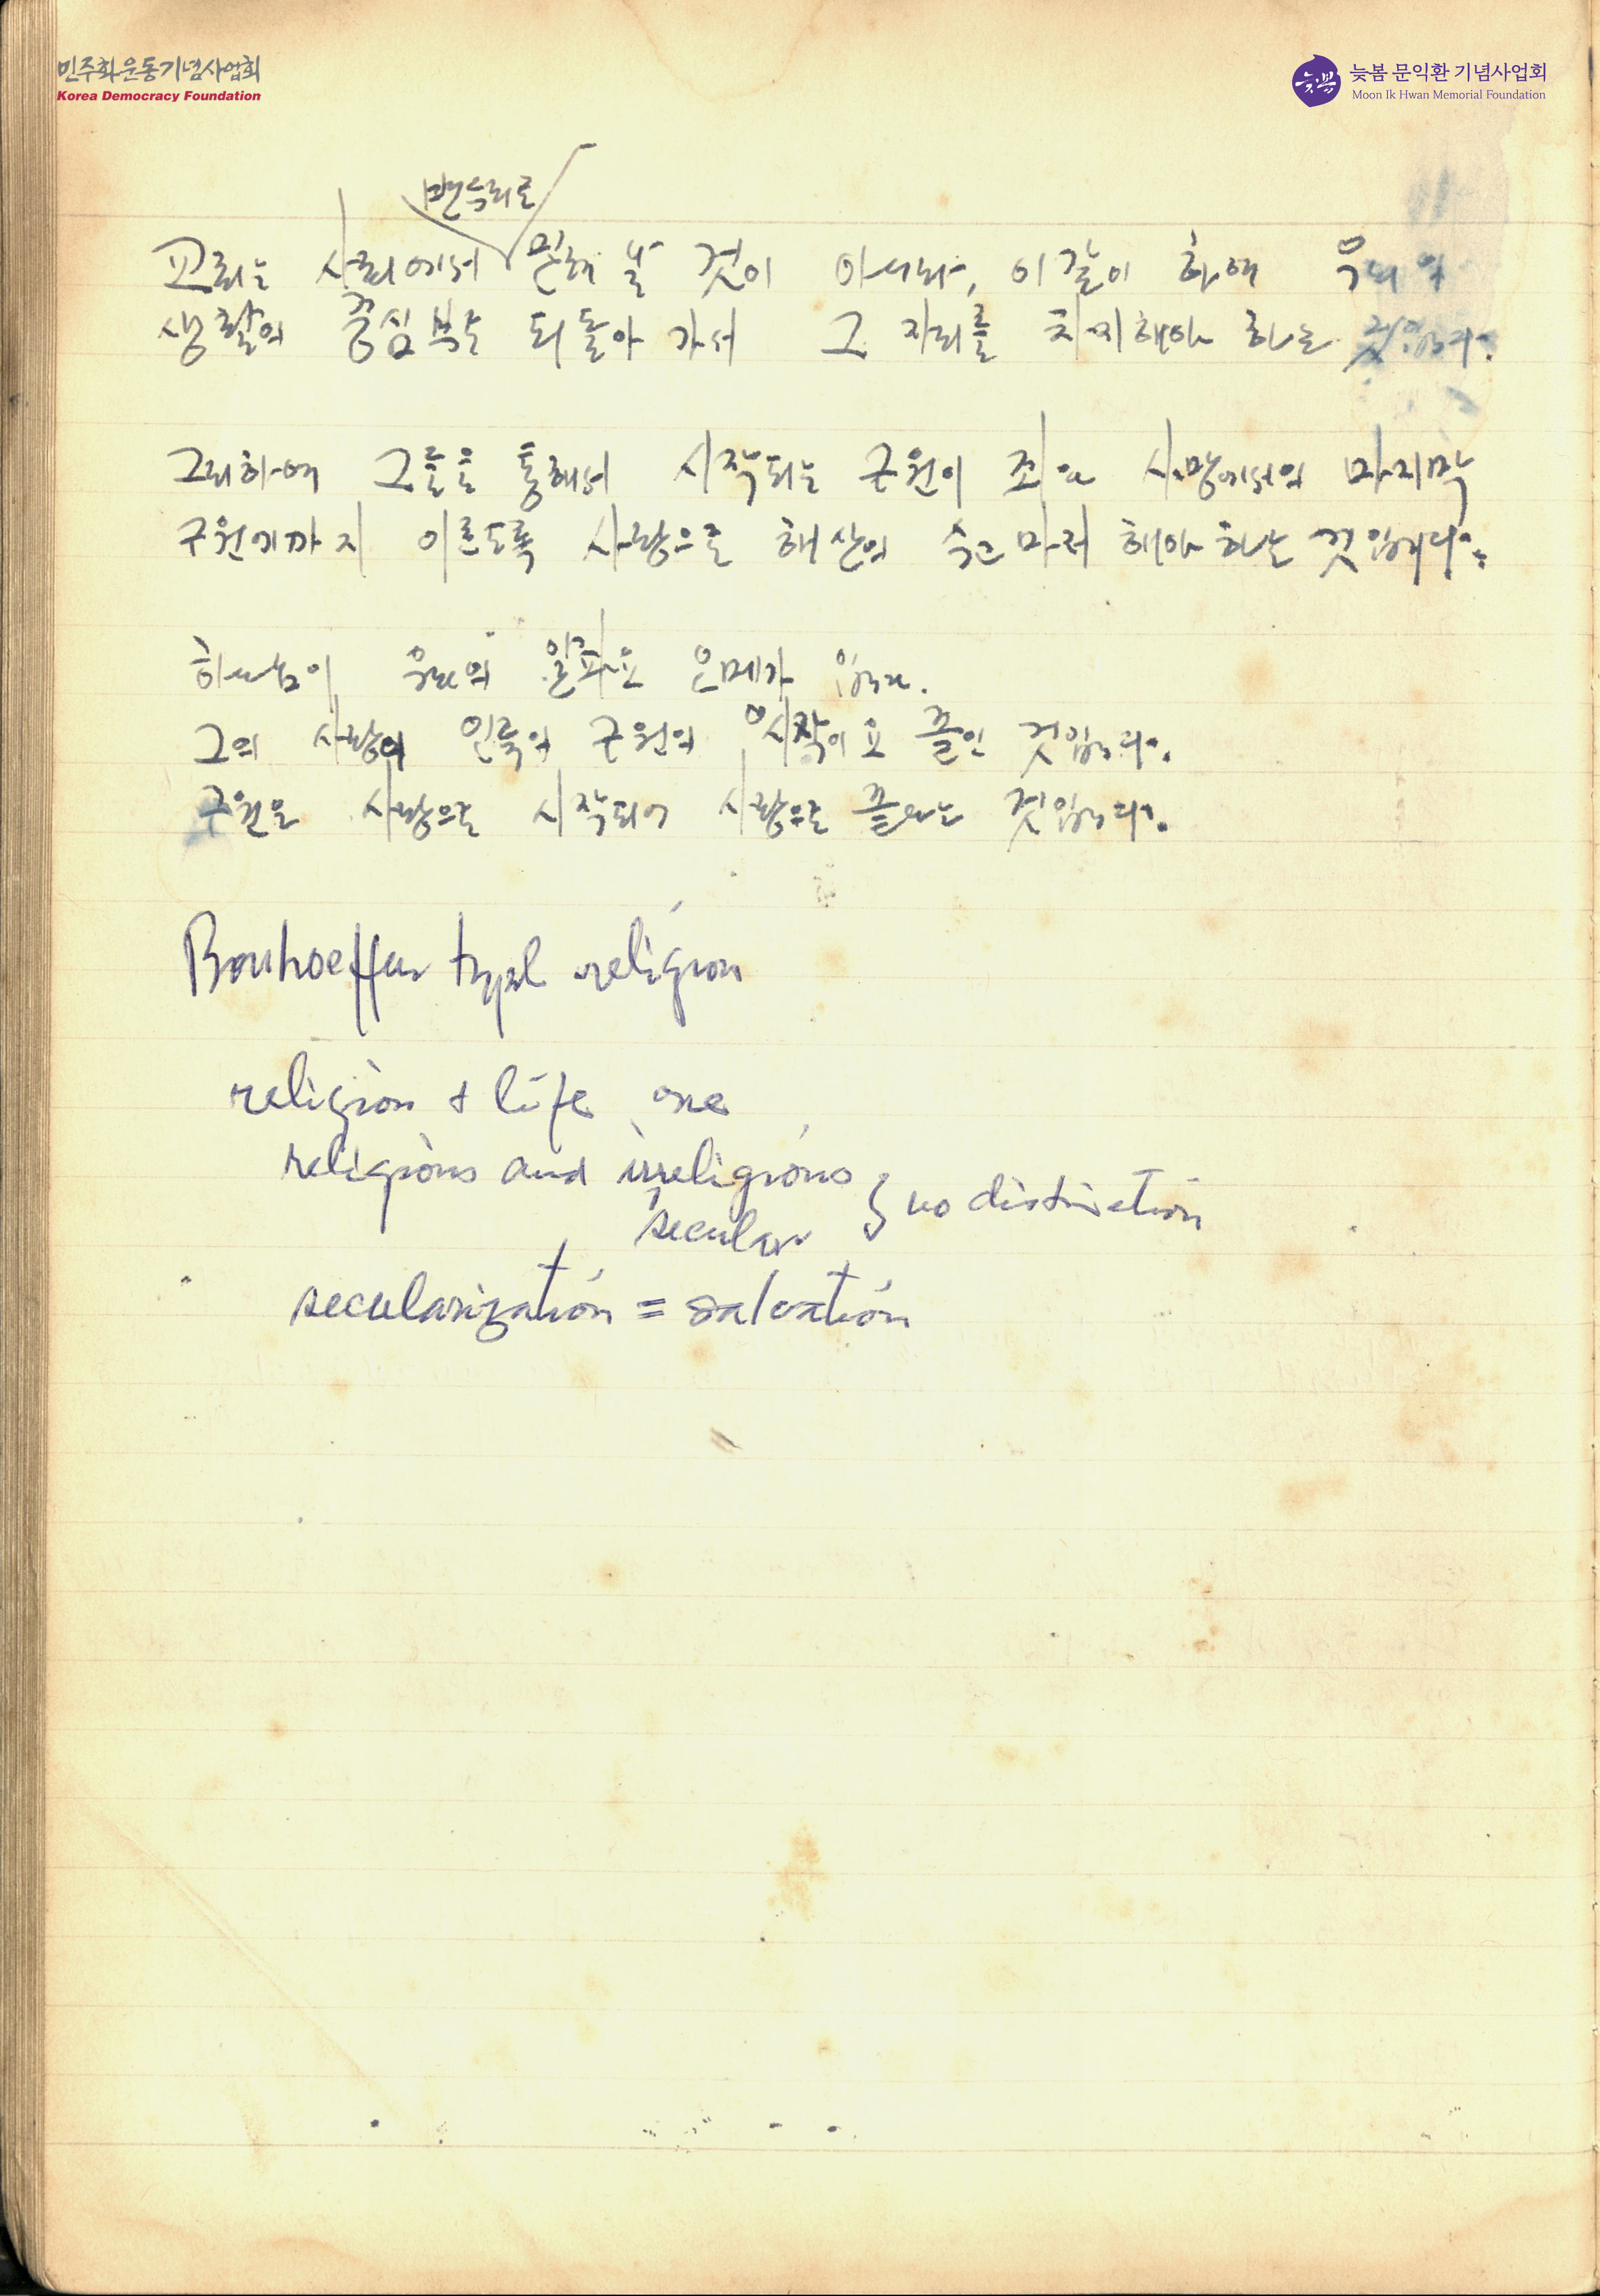 민주화운동기념사업회
Korea Democracy Foundation
늦봄 문익환 기념사업회
Moon Ik Hwan Memorial Foundation
변두리로
교회는 사회에서 밀려 날 것이 아니라, 이같이 하여 우리의
생활의 중심부로 되돌아 가서 그 자리를 차지해야 하는 것입니다.
그리하여 그들을 통해서 시작되는 구원이 죄와 사망에서의 마지막
구원에까지 이르도록 사랑으로 해산의 수고마저 해야 하는 것입니다.
하나님이 우리의 알파요 오메가
그의 사랑이 인류의 구원의 시작이요 끝인 것입니다.
구원은 사랑으로 시작되어 사랑으로 끝나는 것입니다.
Bonhoeffer type religion
religion + life one
religious and irreligious
secular } no distinction
secularization = salvation